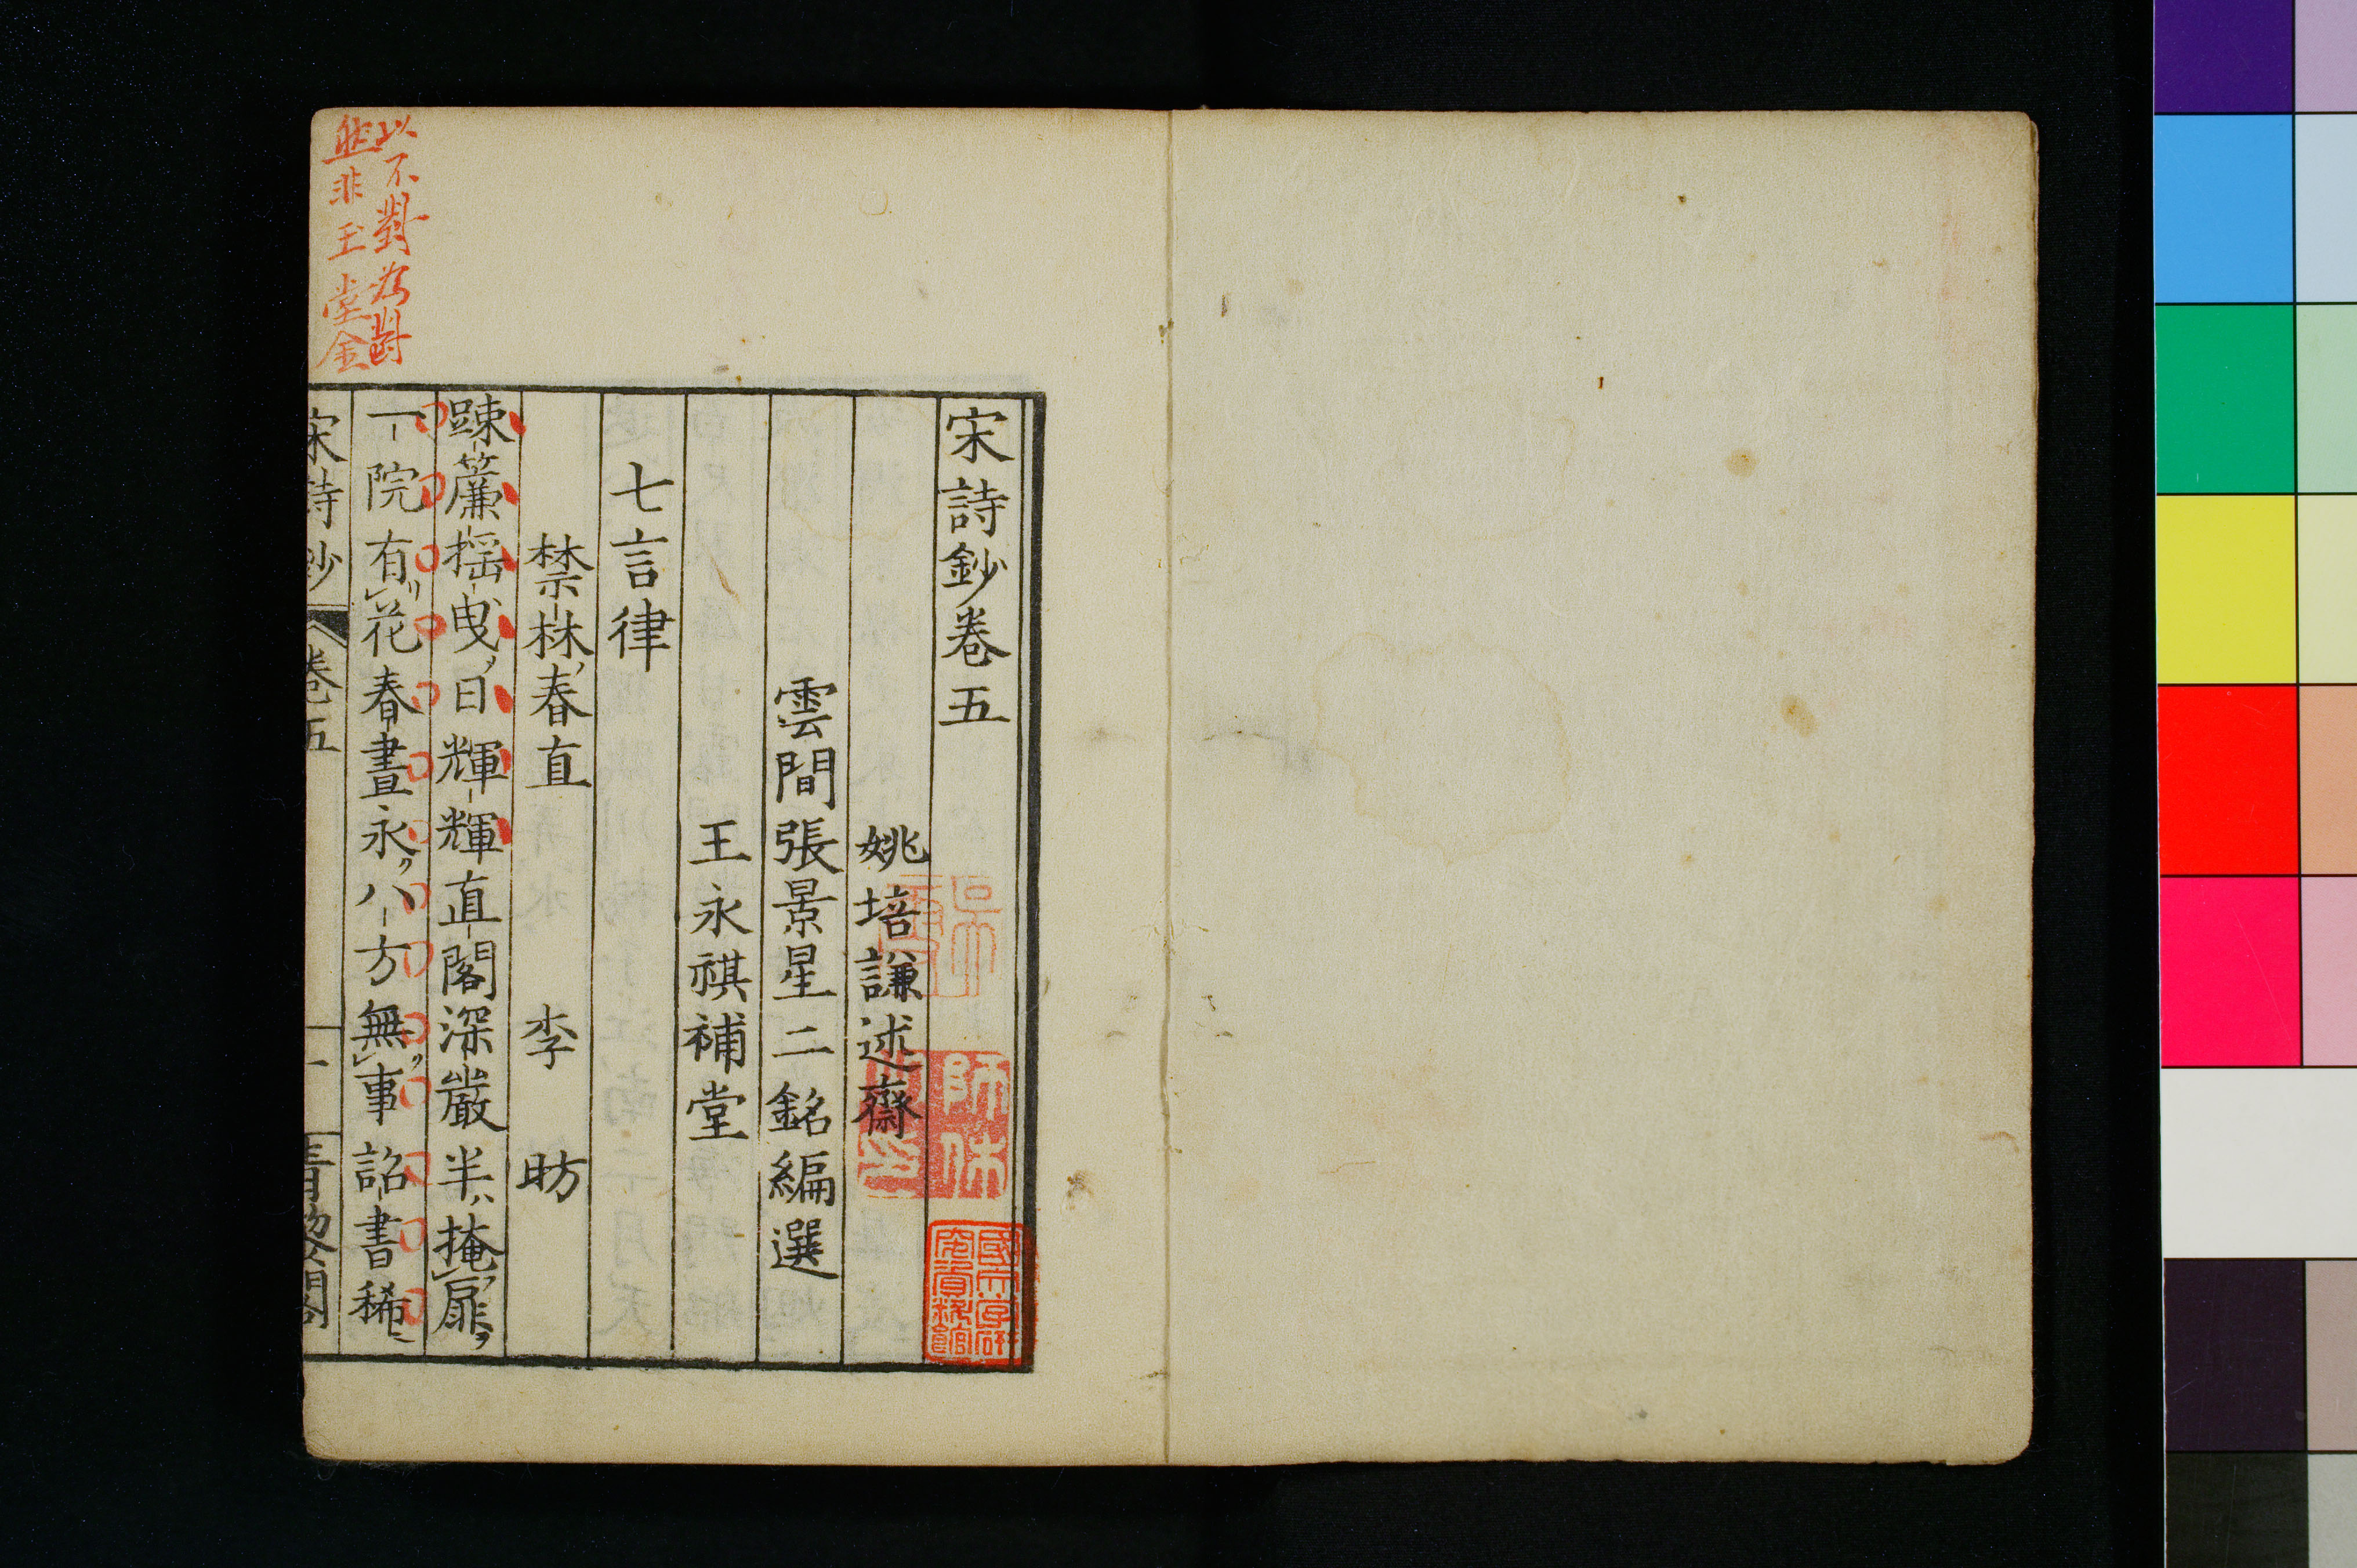 宋詩鈔卷五
姚培謙述齋
雲間張景星二銘編選
王永祺補堂
七言律
禁林春直　李昉
踈簾揺曵日輝輝直閣深嚴半掩扉
一院有花春晝永八方無事詔書稀
宋詩鈔　卷五　一
以不對為對
非玉堂金
國文学研
究資料館